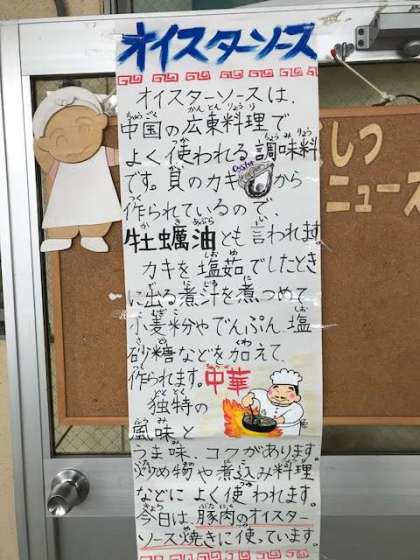 オイスターソース
オイスターソースは、
中国の広東料理で
よく使われる調味料
です。貝のカキから
作られているので、
牡蠣油とも言われます
カキを塩茹でしたとき
に出る煮汁を煮つめて
小麦粉やでんぷん、塩
砂糖などを加えて、
作られます。中華
独特の
風味と
うま味、コクがあります。
炒め物や煮込み料理
などによく使われます。
今日は、豚肉のオイスター
ソース焼きに使っています。
しつ
ニュース